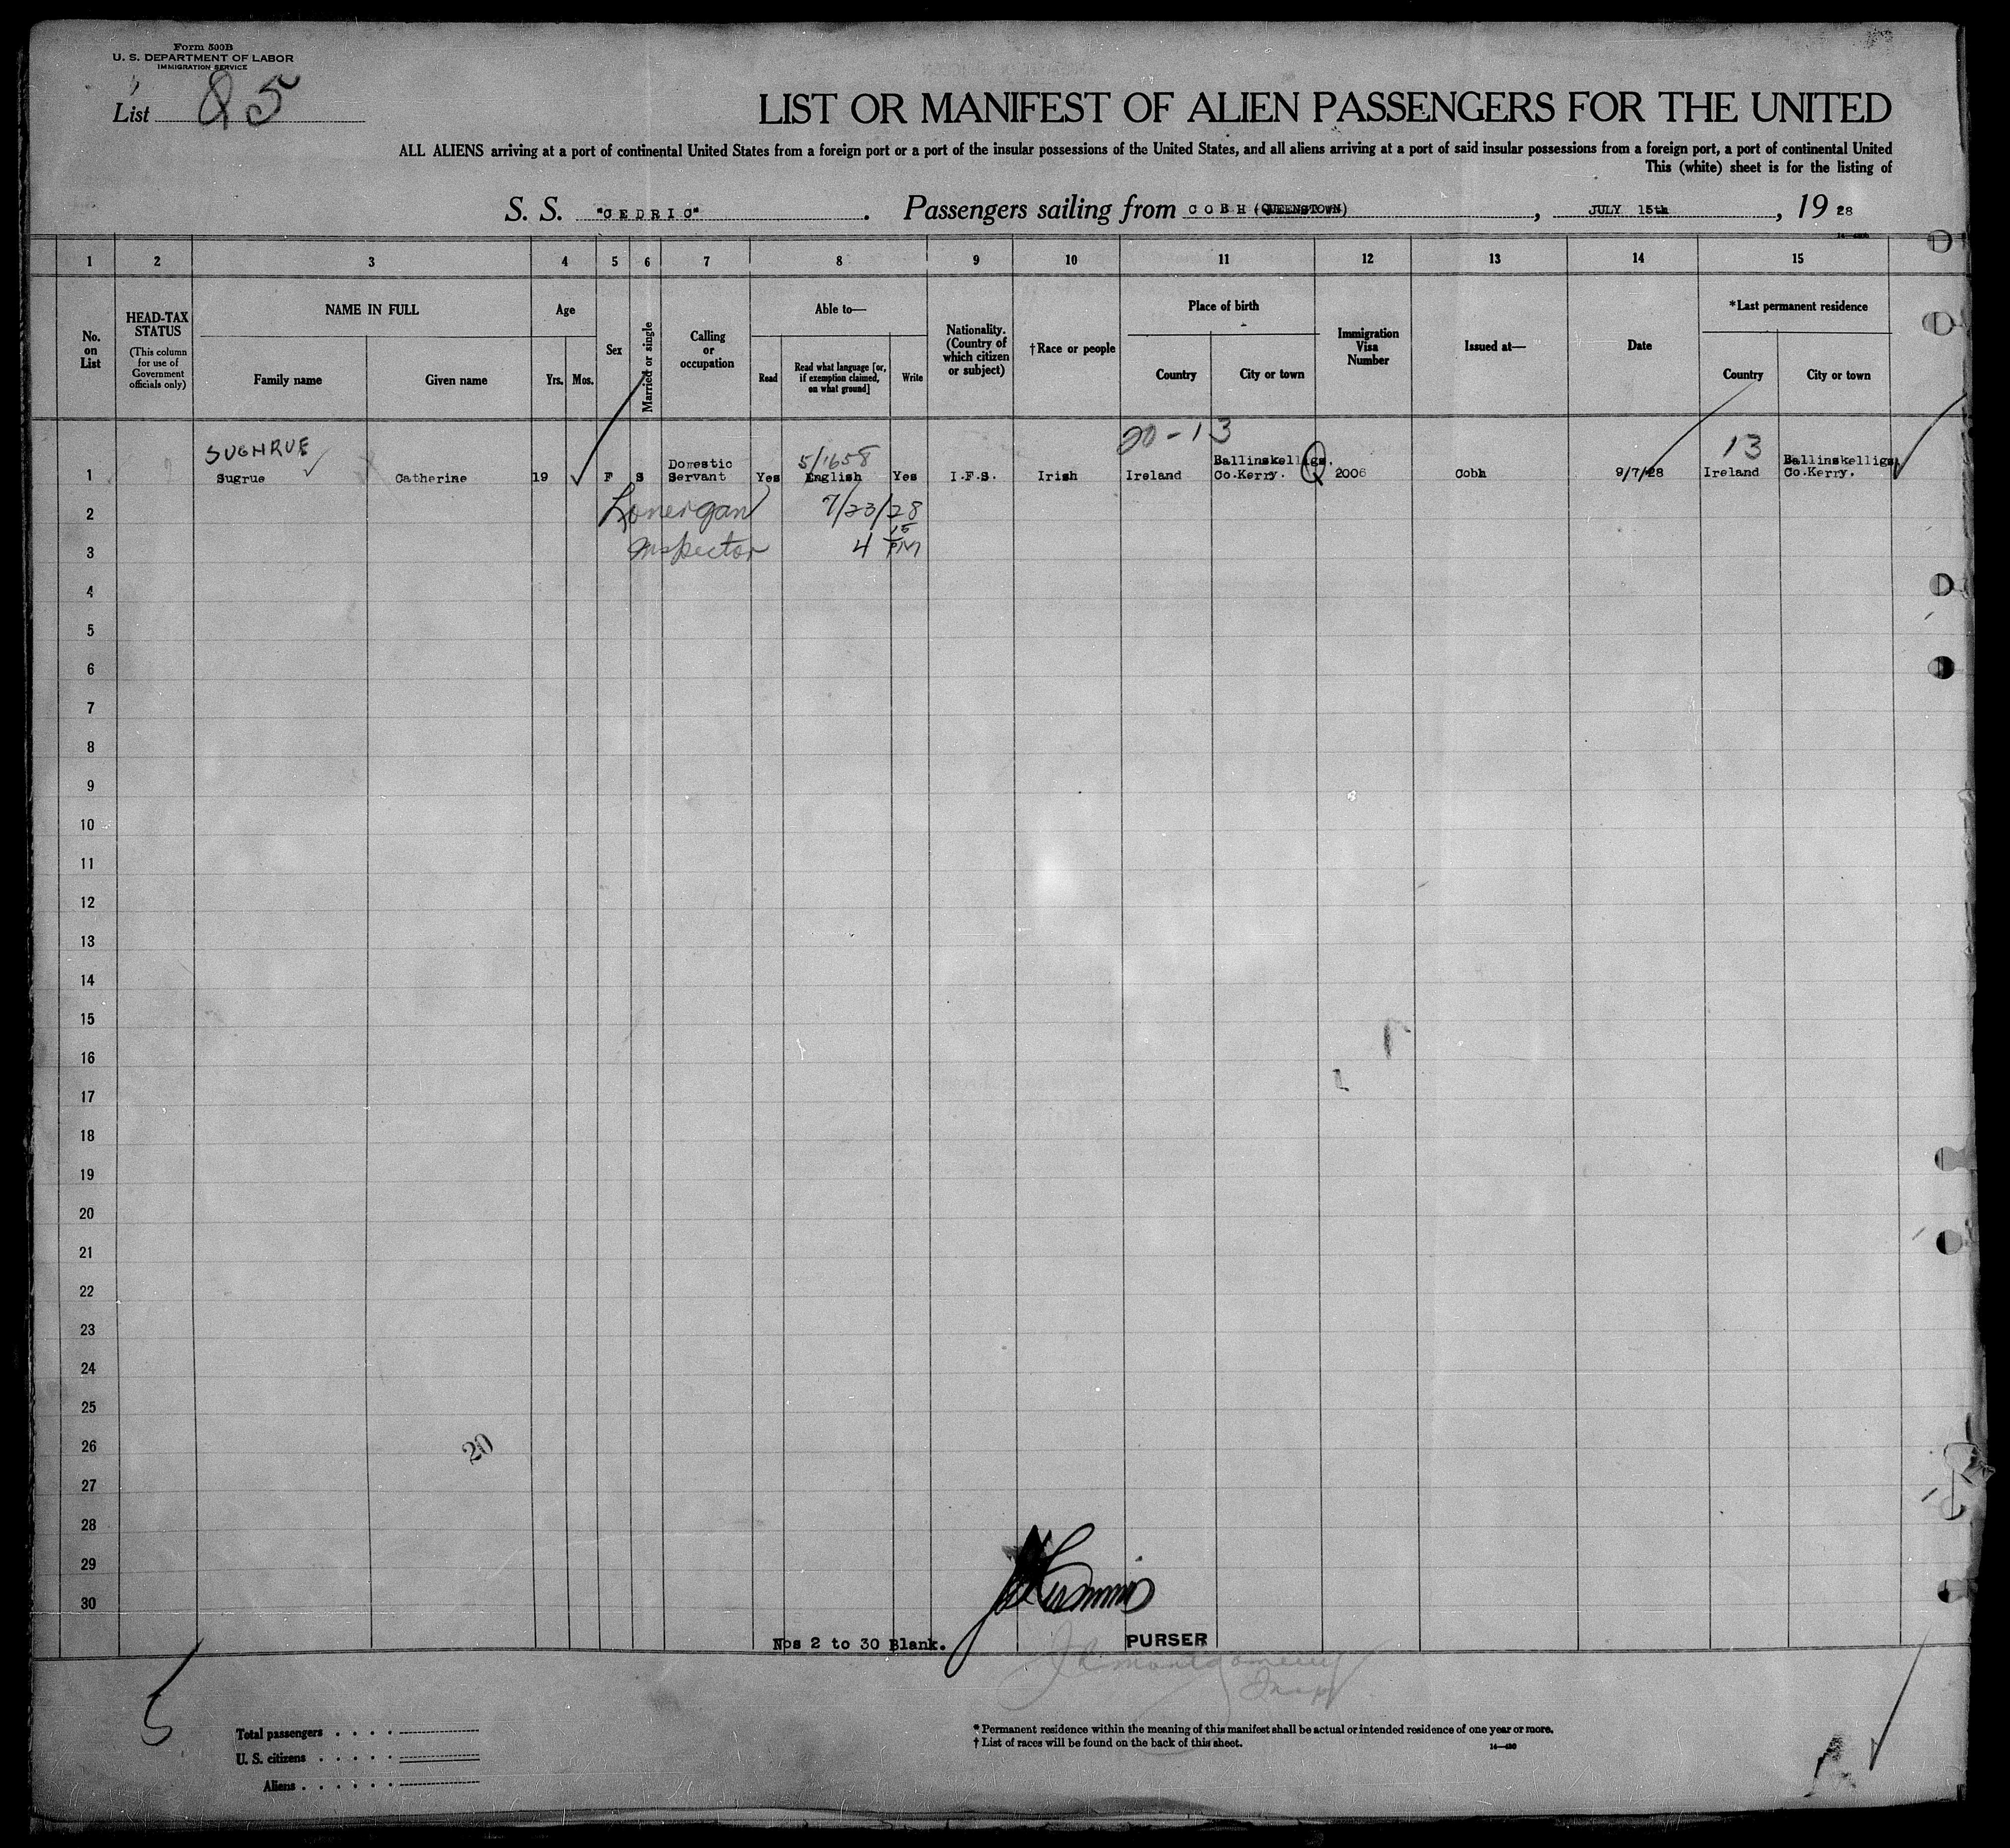 Form 500B
U. S. DEPARTMENT OF LABOR
IMMIGRATION SERVICE
List 85
LIST OR MANIFEST OF ALIEN PASSENGERS FOR THE UNITED
ALL ALIENS arriving at a port of continental United States from a foreign port or a port of the insular possessions of the United States, and all aliens arriving at a port of said insular possessions from a foreign port, a port of continental United
This (white) sheet is for the listing of
S. S. "CEDRIC". Passengers sailing from COBH (QUEENSTOWN), JULY 15th, 1928
1 2 3 4 5 6 7 8 9 10 11 12 13 14 15
No. on List
HEAD-TAX STATUS
(This column for use of Government officials only)
NAME IN FULL
Family name
Given name
Age
Yrs. Mos.
Sex
Married or single
Calling or occupation
Able to—
Read
Read what language [or, if exemption claimed, on what ground]
Write
Nationality. (Country of which citizen or subject)
†Race or people
Place of birth
Country
City or town
Immigration Visa Number
Issued at—
Date
*Last permanent residence
Country
City or town
SUGHRUE
5/1658
20-13
13
1 Sugrue Catherine 19 F S Domestic Servant Yes English Yes I.F.S. Irish Ireland Ballinskelligs. Co.Kerry. Q 2006 Cobh 9/7/28 Ireland Ballinskelligs Co.Kerry.
2 Lonergan 7/23/28
3 Inspector 4 15 PM
4
5
6
7
8
9
10
11
12
13
14
15
16
17
18
19
20
21
22
23
24
25
26
20
27
28
29
30
Nos 2 to 30 Blank.
PURSER
Montgomery
Insp
Total passengers
U. S. citizens
Aliens
* Permanent residence within the meaning of this manifest shall be actual or intended residence of one year or more.
† List of races will be found on the back of this sheet.
14—430